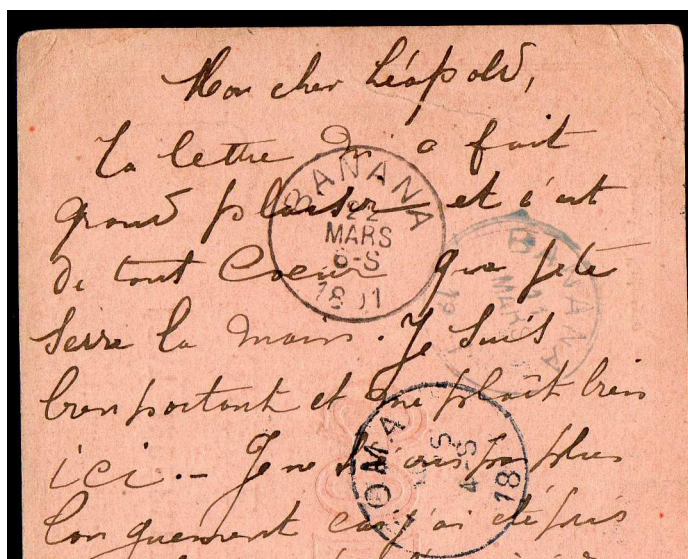 Mon cher Léopold,
Ta lettre m'a fait
grand plaisir et c'est
de tout Coeur que je te
serre la main. Je suis
bien portant et me plaît bien
ici. – Je ne t'écris pas plus
longuement car j'ai depuis
BANANA
22
MARS
6-S
1891
BANANA
MARS
BOMA
4-S
18